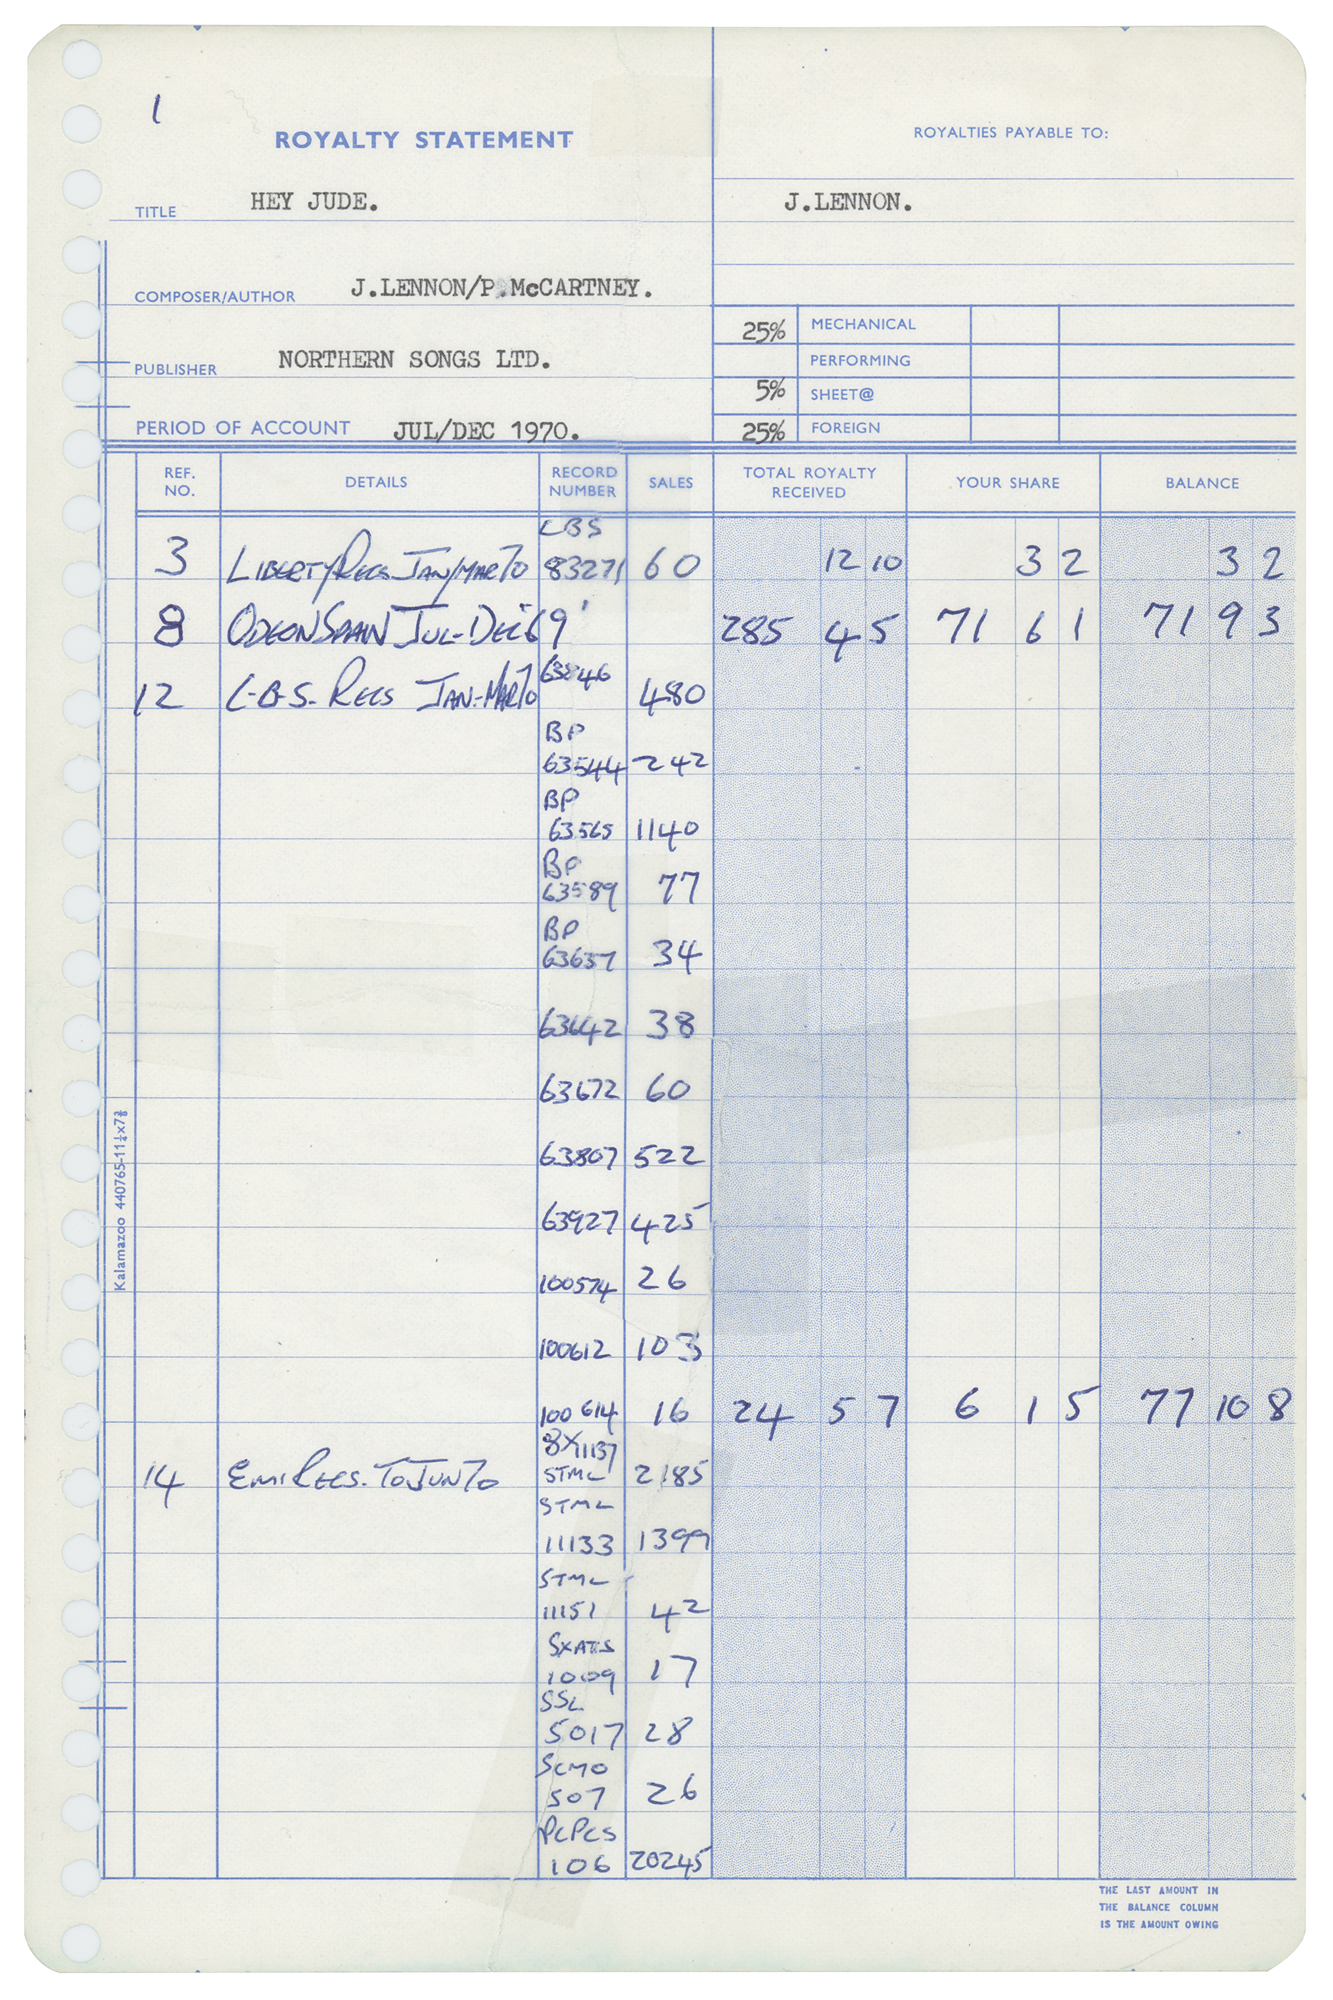 1
ROYALTY STATEMENT
ROYALTIES PAYABLE TO:
TITLE HEY JUDE.
J.LENNON.
COMPOSER/AUTHOR J.LENNON/P.McCARTNEY.
25% MECHANICAL
PUBLISHER NORTHERN SONGS LTD.
PERFORMING
5% SHEET@
PERIOD OF ACCOUNT JUL/DEC 1970.
25% FOREIGN
REF. NO. DETAILS RECORD NUMBER SALES TOTAL ROYALTY RECEIVED YOUR SHARE BALANCE
LBS
3 LIBERTY RECS JAN/MAR 70 83271 60 12 10 3 2 3 2
8 ODEON SPAIN JUL-DEC 69 285 4 5 71 6 1 71 9 3
12 C-B-S- RECS JAN-MAR 70 63846 480
BP
63544 242
BP
63565 1140
BP
63589 77
BP
63637 34
63642 38
63672 60
63807 522
63927 425
100574 26
100612 103
100614 16 24 5 7 6 1 5 77 10 8
11137
14 EMI RECS. TO JUN 70 STML 2185
STML
11133 1399
STML
11151 42
1009 17
SSL
5017 28
SCMO
507 26
PCPCS
106 20245
Kalamazoo 440765-11¼x7⅜
THE LAST AMOUNT IN
THE BALANCE COLUMN
IS THE AMOUNT OWING